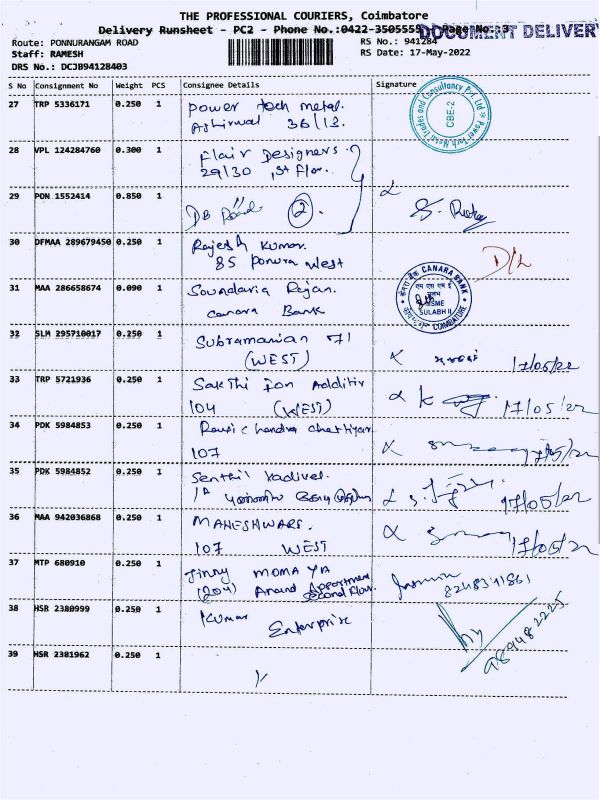 THE PROFESSIONAL COURIERS, Coimbatore
Delivery Runsheet - PC2 - Phone No.:0422-3505555 Page No. 3
DOCUMENT DELIVERY
Route: PONNURANGAM ROAD
RS No.: 941284
Staff: RAMESH
RS Date: 17-May-2022
DRS No.: DCJB94128403
S No Consignment No Weight PCS Consignee Details Signature
27 TRP 5336171 0.250 1 power tech metal.
36/13.
Consultancy Pvt. Ltd
CBE-2
28 VPL 124284760 0.300 1 Flair Designers
29/30, 1st Flor.
29 PON 1552414 0.850 1
DB Road 2.
30 DFMAA 289679450 0.250 1 Rajesh Kumar.
85 Ponura West
D/L
31 MAA 286658674 0.090 1 Soundaria Rajan.
Canara Bank
CANARA BANK
SULABH II
COIMBATORE
32 SLM 295710017 0.250 1 Subramanian 71
(WEST) 17/05/22
33 TRP 5721936 0.250 1 Sakthi Ion Additiv
104 (WEST) 17/05/22
34 PDK 5984853 0.250 1 Ravi Chandra Chettiyar
107
35 PDK 5984852 0.250 1 Senthil Vadivel.
17/05/22
36 MAA 942036868 0.250 1 MAHESHWARI.
107 WEST 17/05/22
37 MTP 680910 0.250 1 Jinny MOMAYA
(204) Anand Appartment Second Floor.
Jasmin
8248341861
38 HSR 2380999 0.250 1 Kumar
Enterprise
39 HSR 2381962 0.250 1